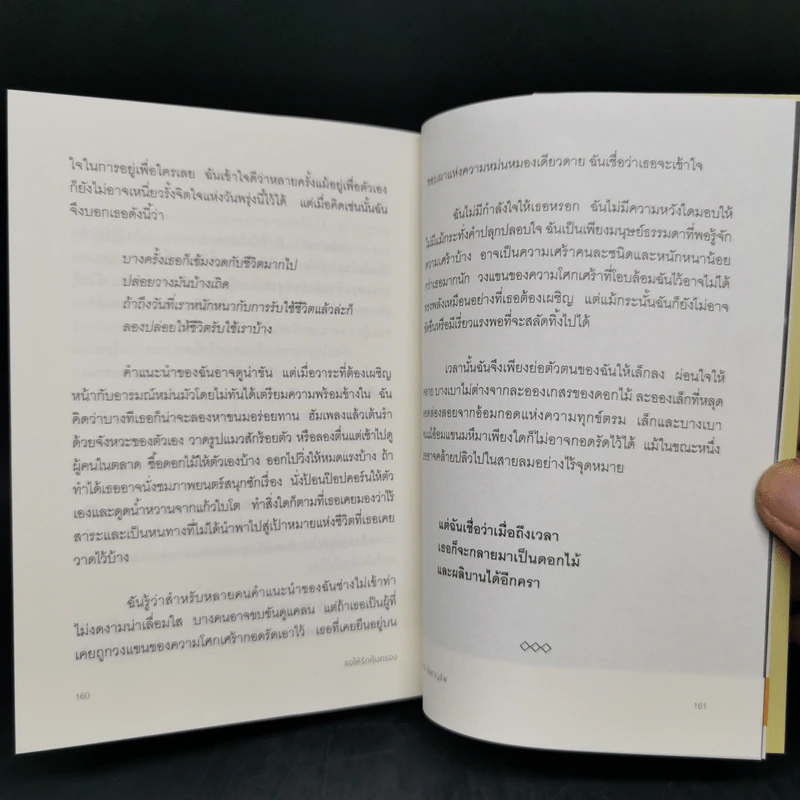 ใจในการอยู่เพื่อใครเลย ฉันเข้าใจดีว่าหลายครั้งแม้อยู่เพื่อตัวเอง
ก็ยังไม่อาจเหนี่ยวรั้งจิตใจแห่งวันพรุ่งนี้ไว้ได้ แต่เมื่อคิดเช่นนั้นฉัน
จึงบอกเธอดังนี้ว่า
บางครั้งเธอก็เข้มงวดกับชีวิตมากไป
ปล่อยวางมันบ้างเถิด
ถ้าถึงวันที่เราหนักหนากับการรับใช้ชีวิตแล้วล่ะก็
ลองปล่อยให้ชีวิตรับใช้เราบ้าง
คำแนะนำของฉันอาจดูน่าขัน แต่เมื่อวาระที่ต้องเผชิญ
หน้ากับอารมณ์หม่นมัวโดยไม่ทันได้เตรียมความพร้อมข้างใน ฉัน
คิดว่าบางทีเธอก็น่าจะลองหาขนมอร่อยทาน ฮัมเพลงแล้วเต้นรำ
ด้วยจังหวะของตัวเอง วาดรูปแมวสักร้อยตัว หรือลองตื่นแต่เช้าไปดู
ผู้คนในตลาด ซื้อดอกไม้ให้ตัวเองบ้าง ออกไปวิ่งให้หมดแรงบ้าง ถ้า
ทำได้เธออาจนั่งชมภาพยนตร์สนุกซักเรื่อง นั่งป้อนป๊อปคอร์นให้ตัว
เองและดูดน้ำหวานจากแก้วใบโต ทำสิ่งใดก็ตามที่เธอเคยมองว่าไร้
สาระและเป็นหนทางที่ไม่ได้นำพาไปสู่เป้าหมายแห่งชีวิตที่เธอเคย
วาดไว้บ้าง
ฉันรู้ว่าสำหรับหลายคนคำแนะนำของฉันช่างไม่เข้าท่า
ไม่งดงามน่าเลื่อมใส บางคนอาจขบขันดูแคลน แต่ถ้าเธอเป็นผู้ที่
เคยถูกวงแขนของความโศกเศร้ากอดรัดเอาไว้ เธอที่เคยยืนอยู่บน
ขอให้รักคุ้มครอง
160
ขอบผาแห่งความหม่นหมองเดียวดาย ฉันเชื่อว่าเธอจะเข้าใจ
ฉันไม่มีกำลังใจให้เธอหรอก ฉันไม่มีความหวังใดมอบให้
ไม่มีแม้กระทั่งคำปลุกปลอบใจ ฉันเป็นเพียงมนุษย์ธรรมดาที่พอรู้จัก
ความเศร้าบ้าง อาจเป็นความเศร้าคนละชนิดและหนักหนาน้อย
กว่าเธอมากนัก วงแขนของความโศกเศร้าที่โอบล้อมฉันไว้อาจไม่ได้
ทรงพลังเหมือนอย่างที่เธอต้องเผชิญ แต่แม้กระนั้นฉันก็ยังไม่อาจ
ขัดขืนหรือมีเรี่ยวแรงพอที่จะสลัดทิ้งไปได้
เวลานั้นฉันจึงเพียงย่อตัวตนของฉันให้เล็กลง ผ่อนใจให้
บางเบาไม่ต่างจากละอองเกสรของดอกไม้ ละอองเล็กที่หลุด
ลอยจากอ้อมกอดแห่งความทุกข์ตรม เล็กและบางเบา
แม้อ้อมแขนมหึมาเพียงใดก็ไม่อาจกอดรัดไว้ได้ แม้ในขณะหนึ่ง
คล้ายปลิวไปในสายลมอย่างไร้จุดหมาย
แต่ฉันเชื่อว่าเมื่อถึงเวลา
เธอก็จะกลายมาเป็นดอกไม้
และผลิบานได้อีกครา
161